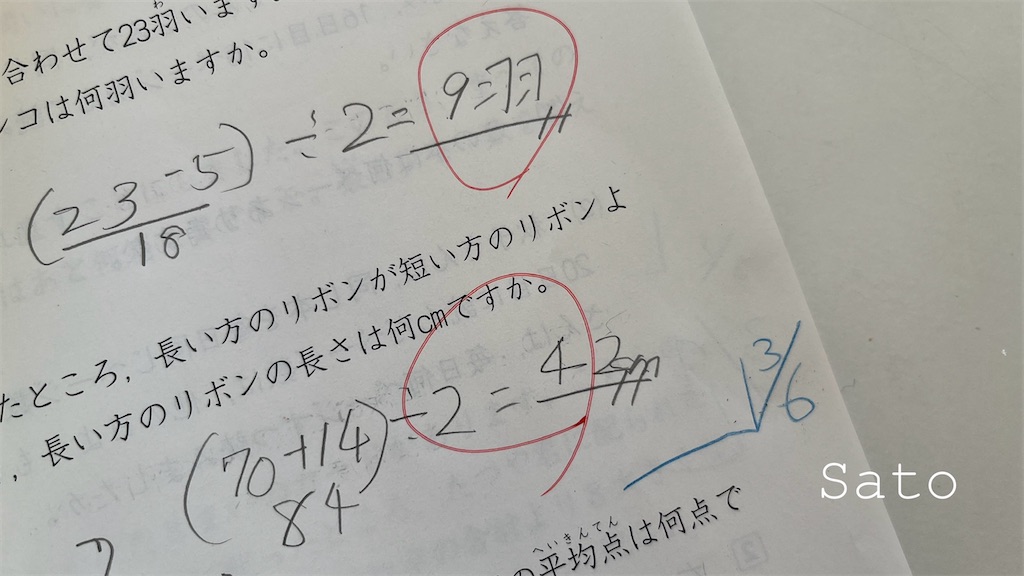 合わせて23羽います
わ
コは何羽いますか。
(23-5)÷2=9羽
18
たところ，長い方のリボンが短い方のリボンよ
，長い方のリボンの長さは何cmですか。
(70+14)÷2=42cm
84
3/6
Sato
へいきんてん
の平均点は何点で